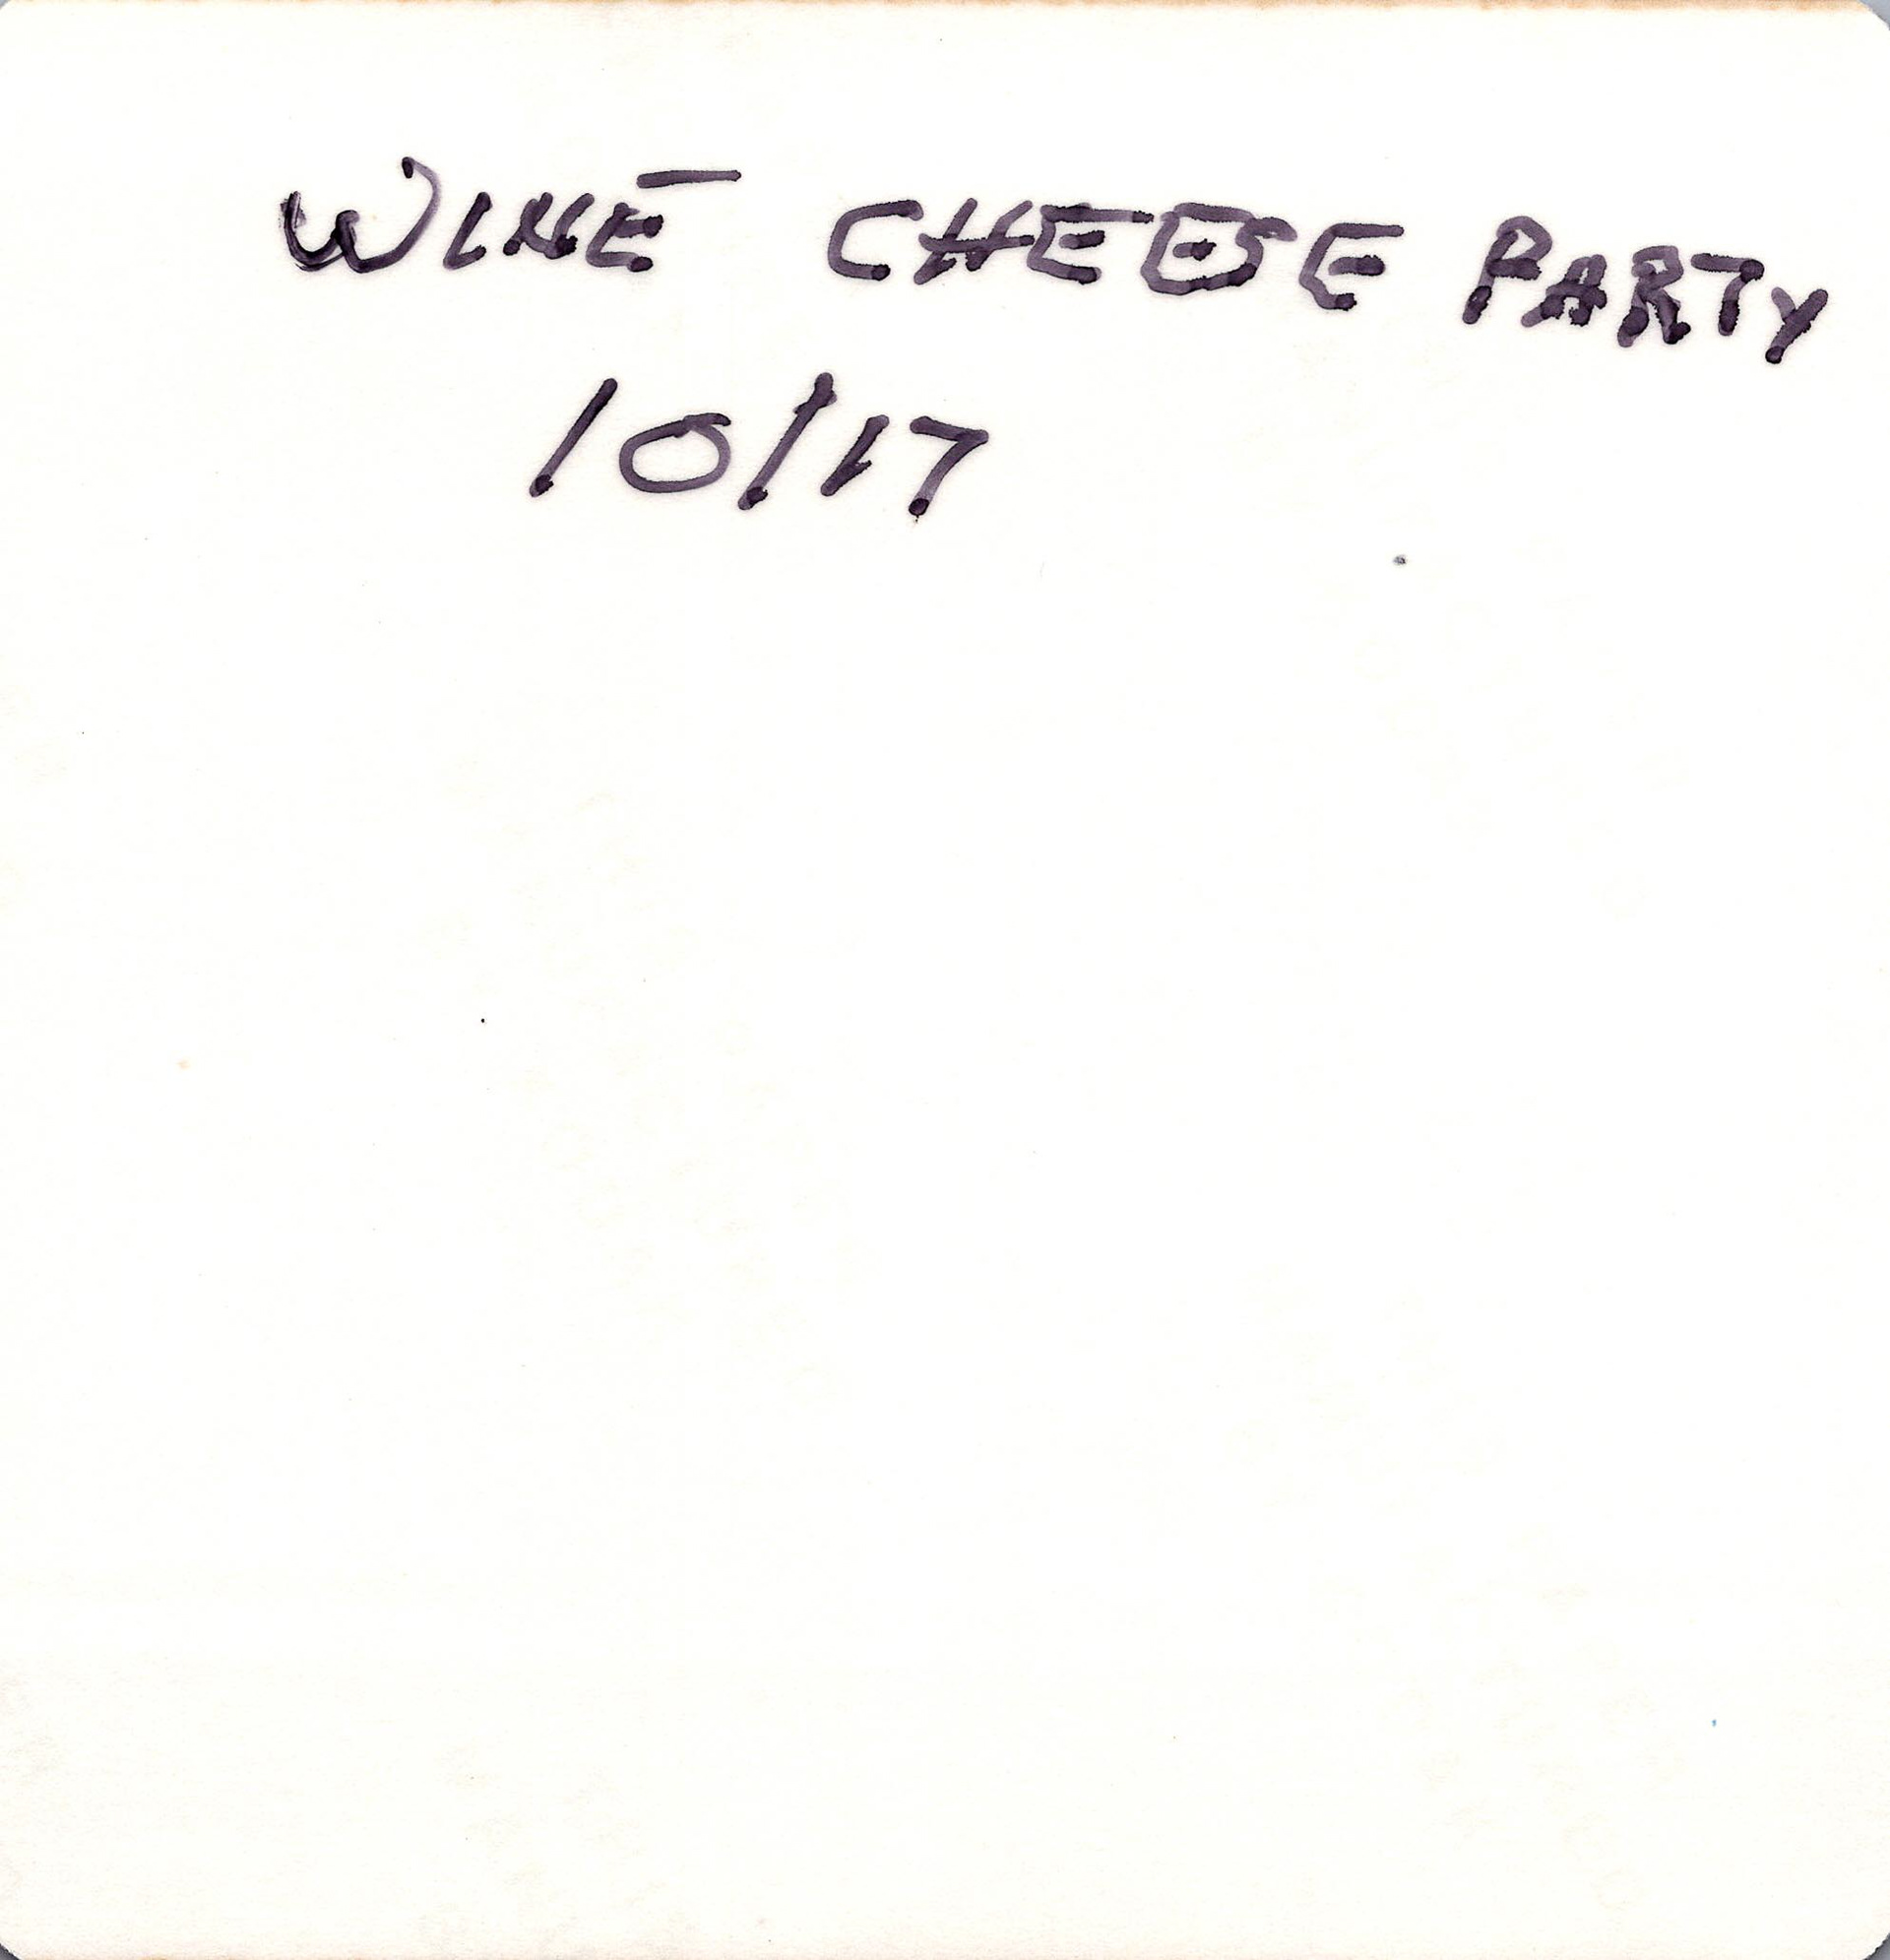 WINE CHEESE PARTY
10/17